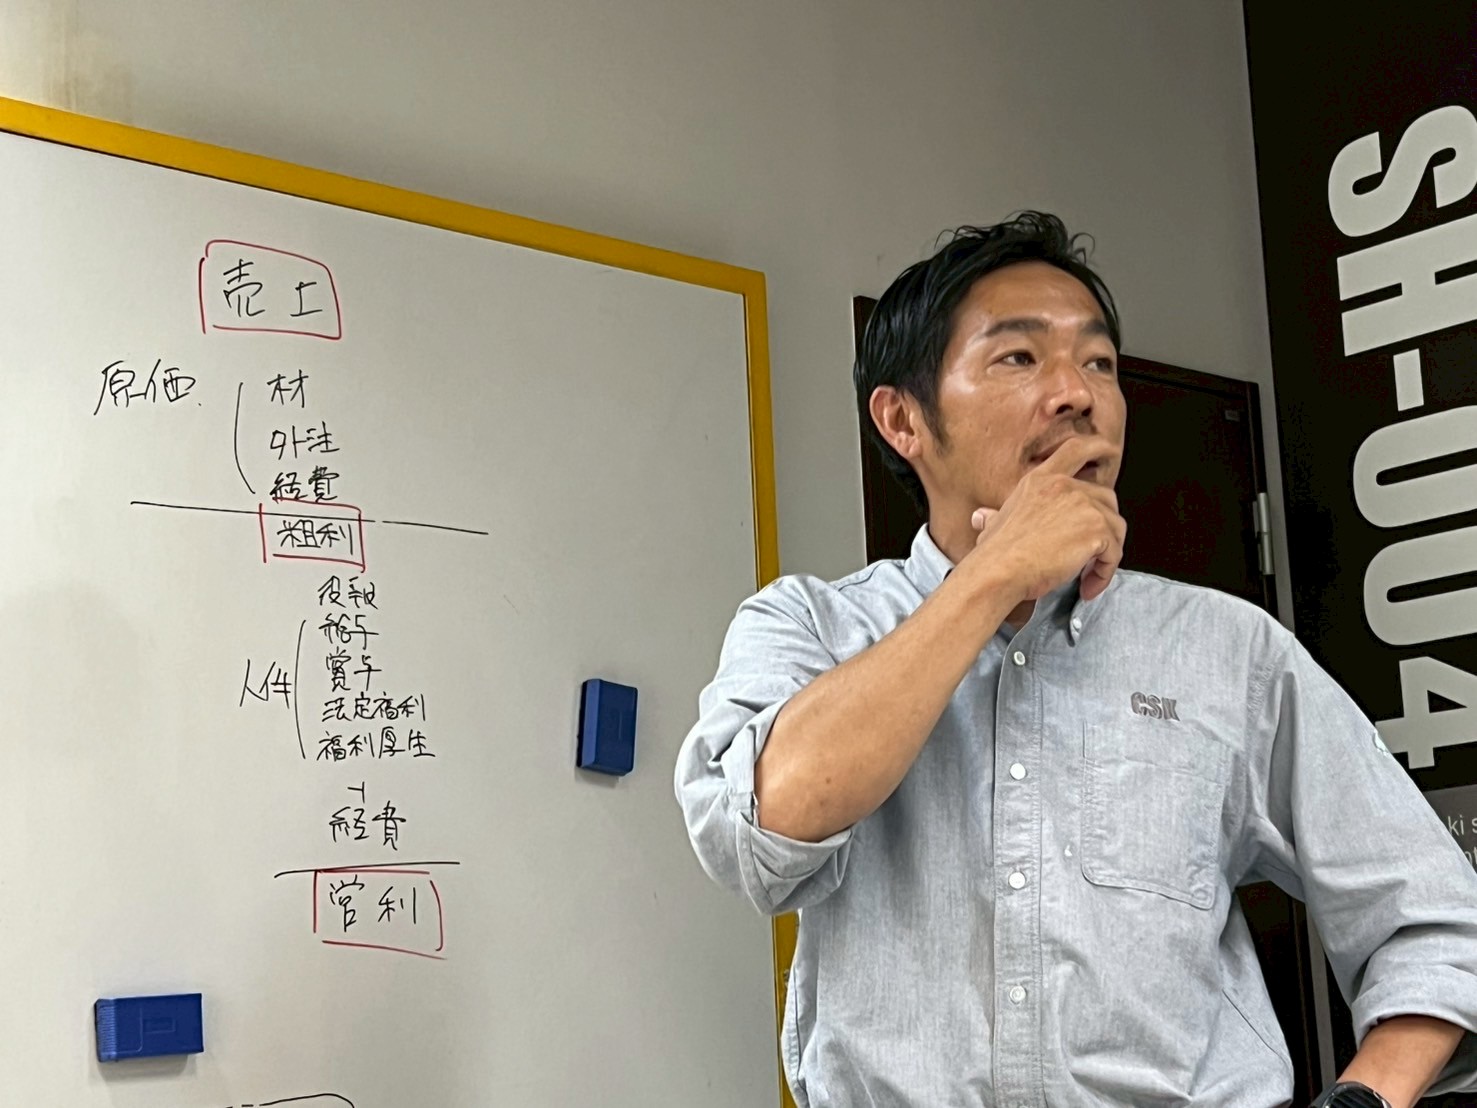 売上
原価
材
外注
経費
粗利
役報
給与
賞与
法定福利
福利厚生
人件
経費
営利
CSK
SH-004
ki s